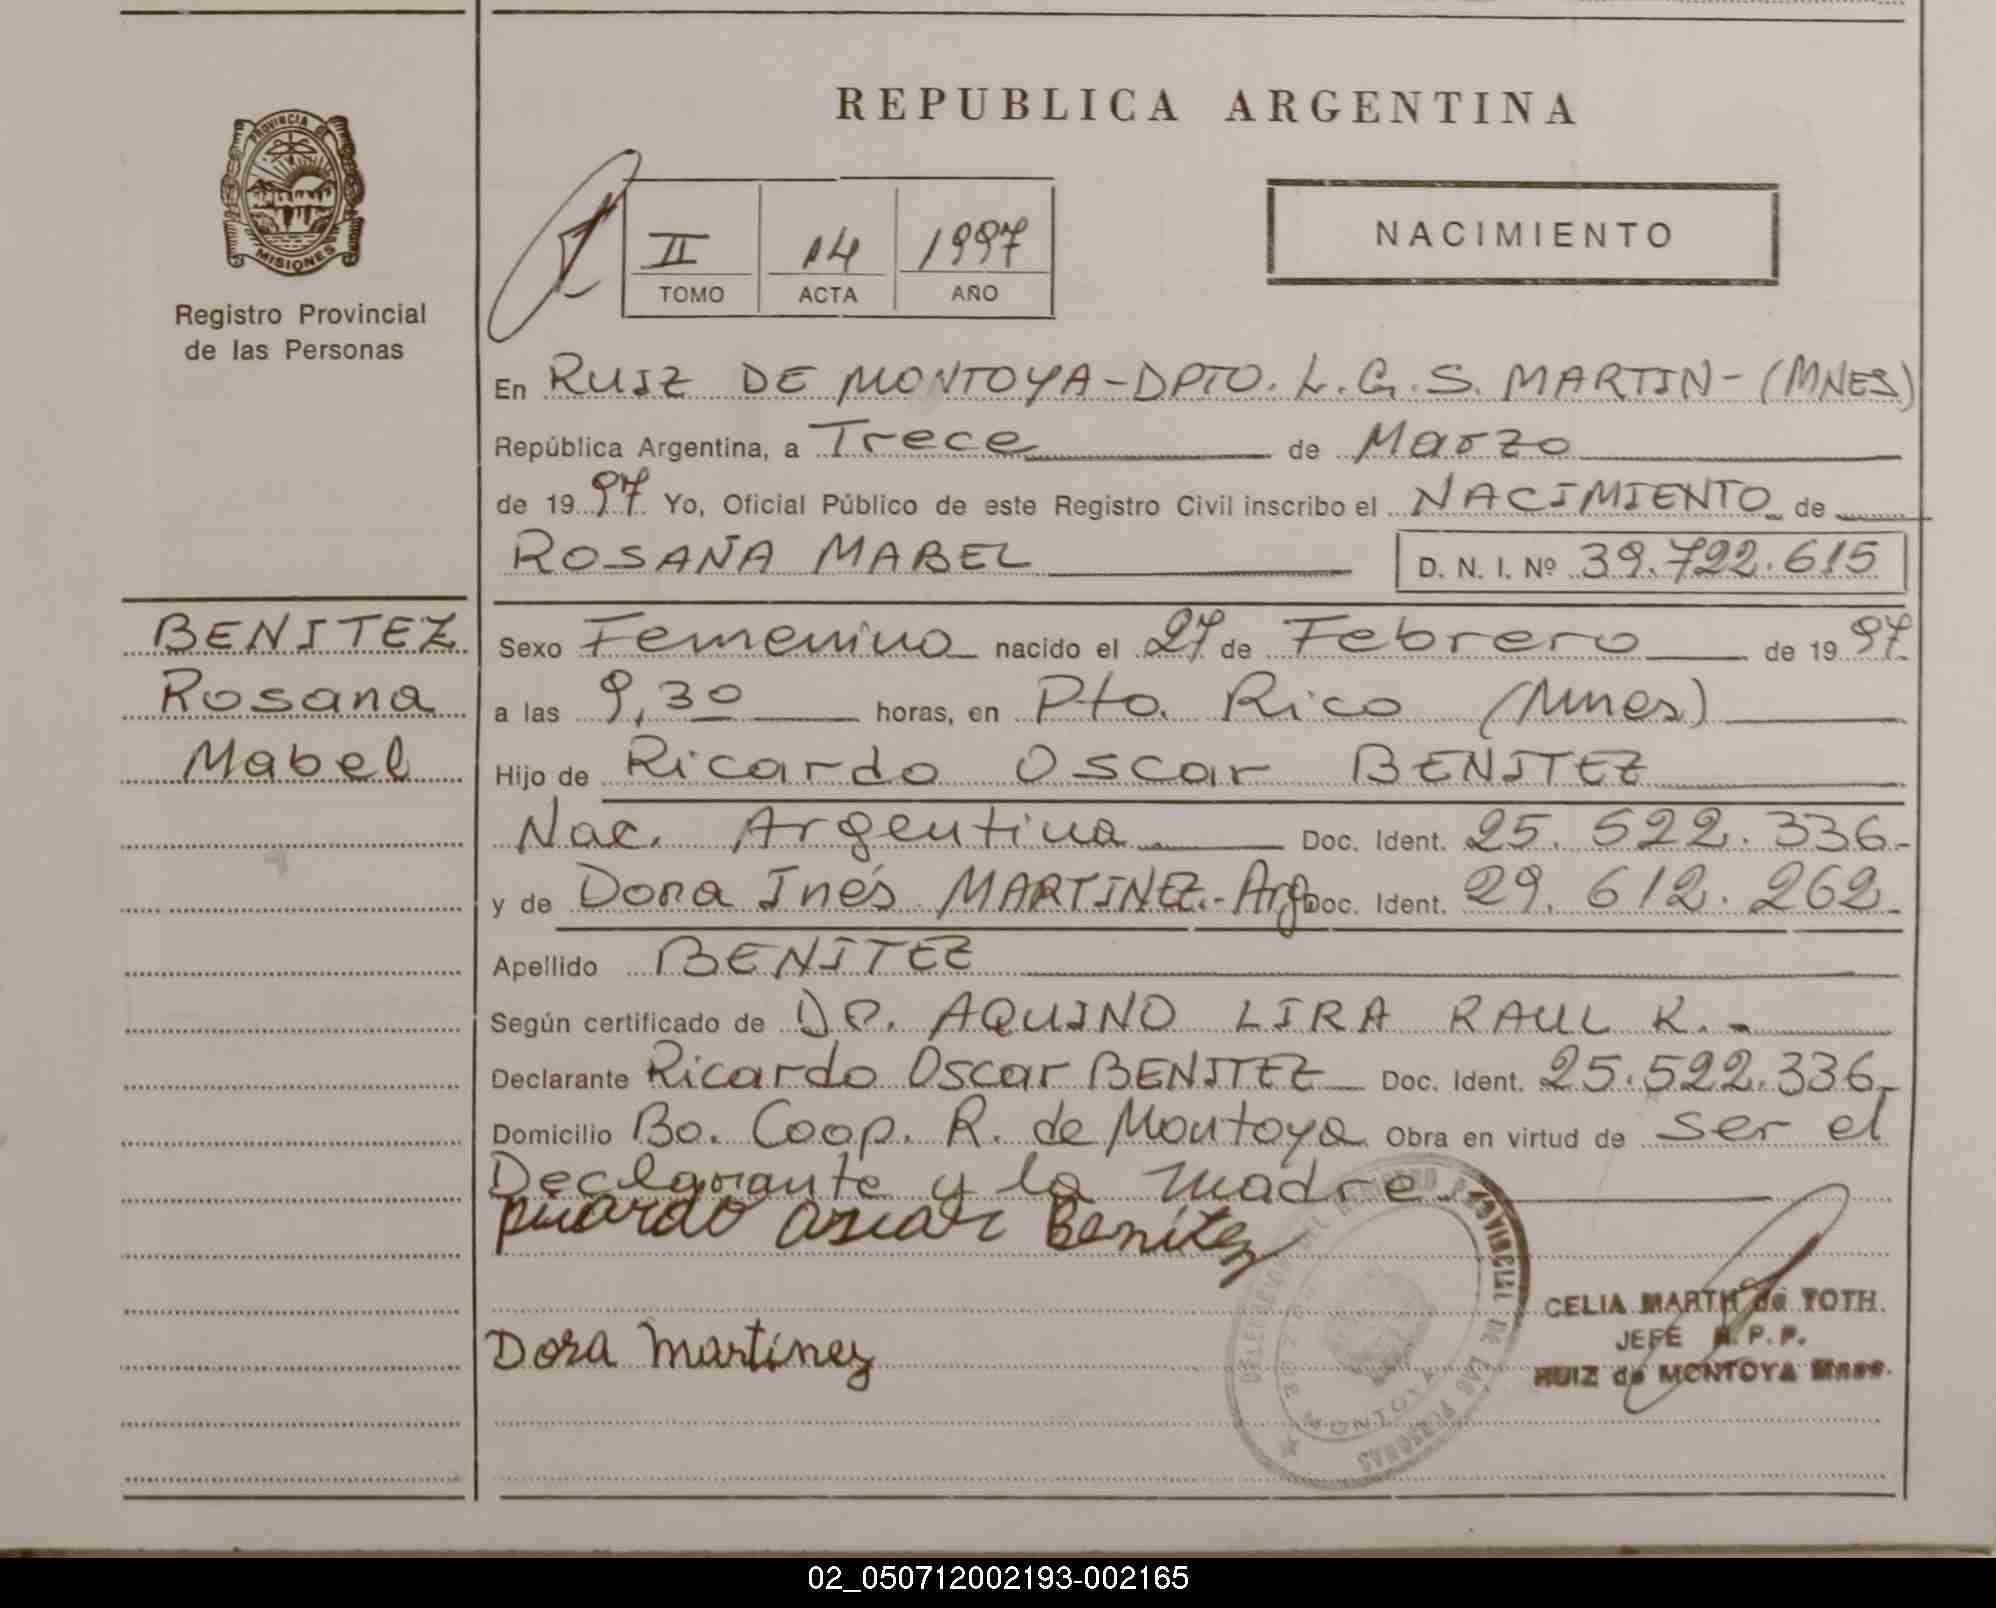 REPUBLICA ARGENTINA
PROVINCIA DE
MISIONES
Registro Provincial
de las Personas
II 14 1997
TOMO ACTA AÑO
NACIMIENTO
En RUIZ DE MONTOYA-DPTO. L.G.S. MARTIN-(MNES)
República Argentina, a Trece de Marzo
de 1997 Yo, Oficial Público de este Registro Civil inscribo el NACIMIENTO de
ROSANA MABEL D. N. I. Nº 39.722.615
BENITEZ
Rosana
Mabel
Sexo Femenino nacido el 27 de Febrero de 1997
a las 9,30 horas, en Pto. Rico (Mnes)
Hijo de Ricardo Oscar BENITEZ
Nac. Argentina Doc. Ident. 25.522.336.-
y de Dora Inés MARTINEZ.- Arg. Doc. Ident. 29.612.262.-
Apellido BENITEZ
Según certificado de Dr. AQUINO LIRA RAUL K.-
Declarante Ricardo Oscar BENITEZ Doc. Ident. 25.522.336.-
Domicilio Bo. Coop. R. de Montoya Obra en virtud de ser el
Declarante y la madre
Ricardo Oscar Benitez
DELEGACION DEL REGISTRO PROVINCIAL DE LAS PERSONAS
MONTOYA
CELIA MARTH de TOTH.
JEFE R.P.P.
RUIZ de MONTOYA Mnes.
Dora Martinez
02_050712002193-002165